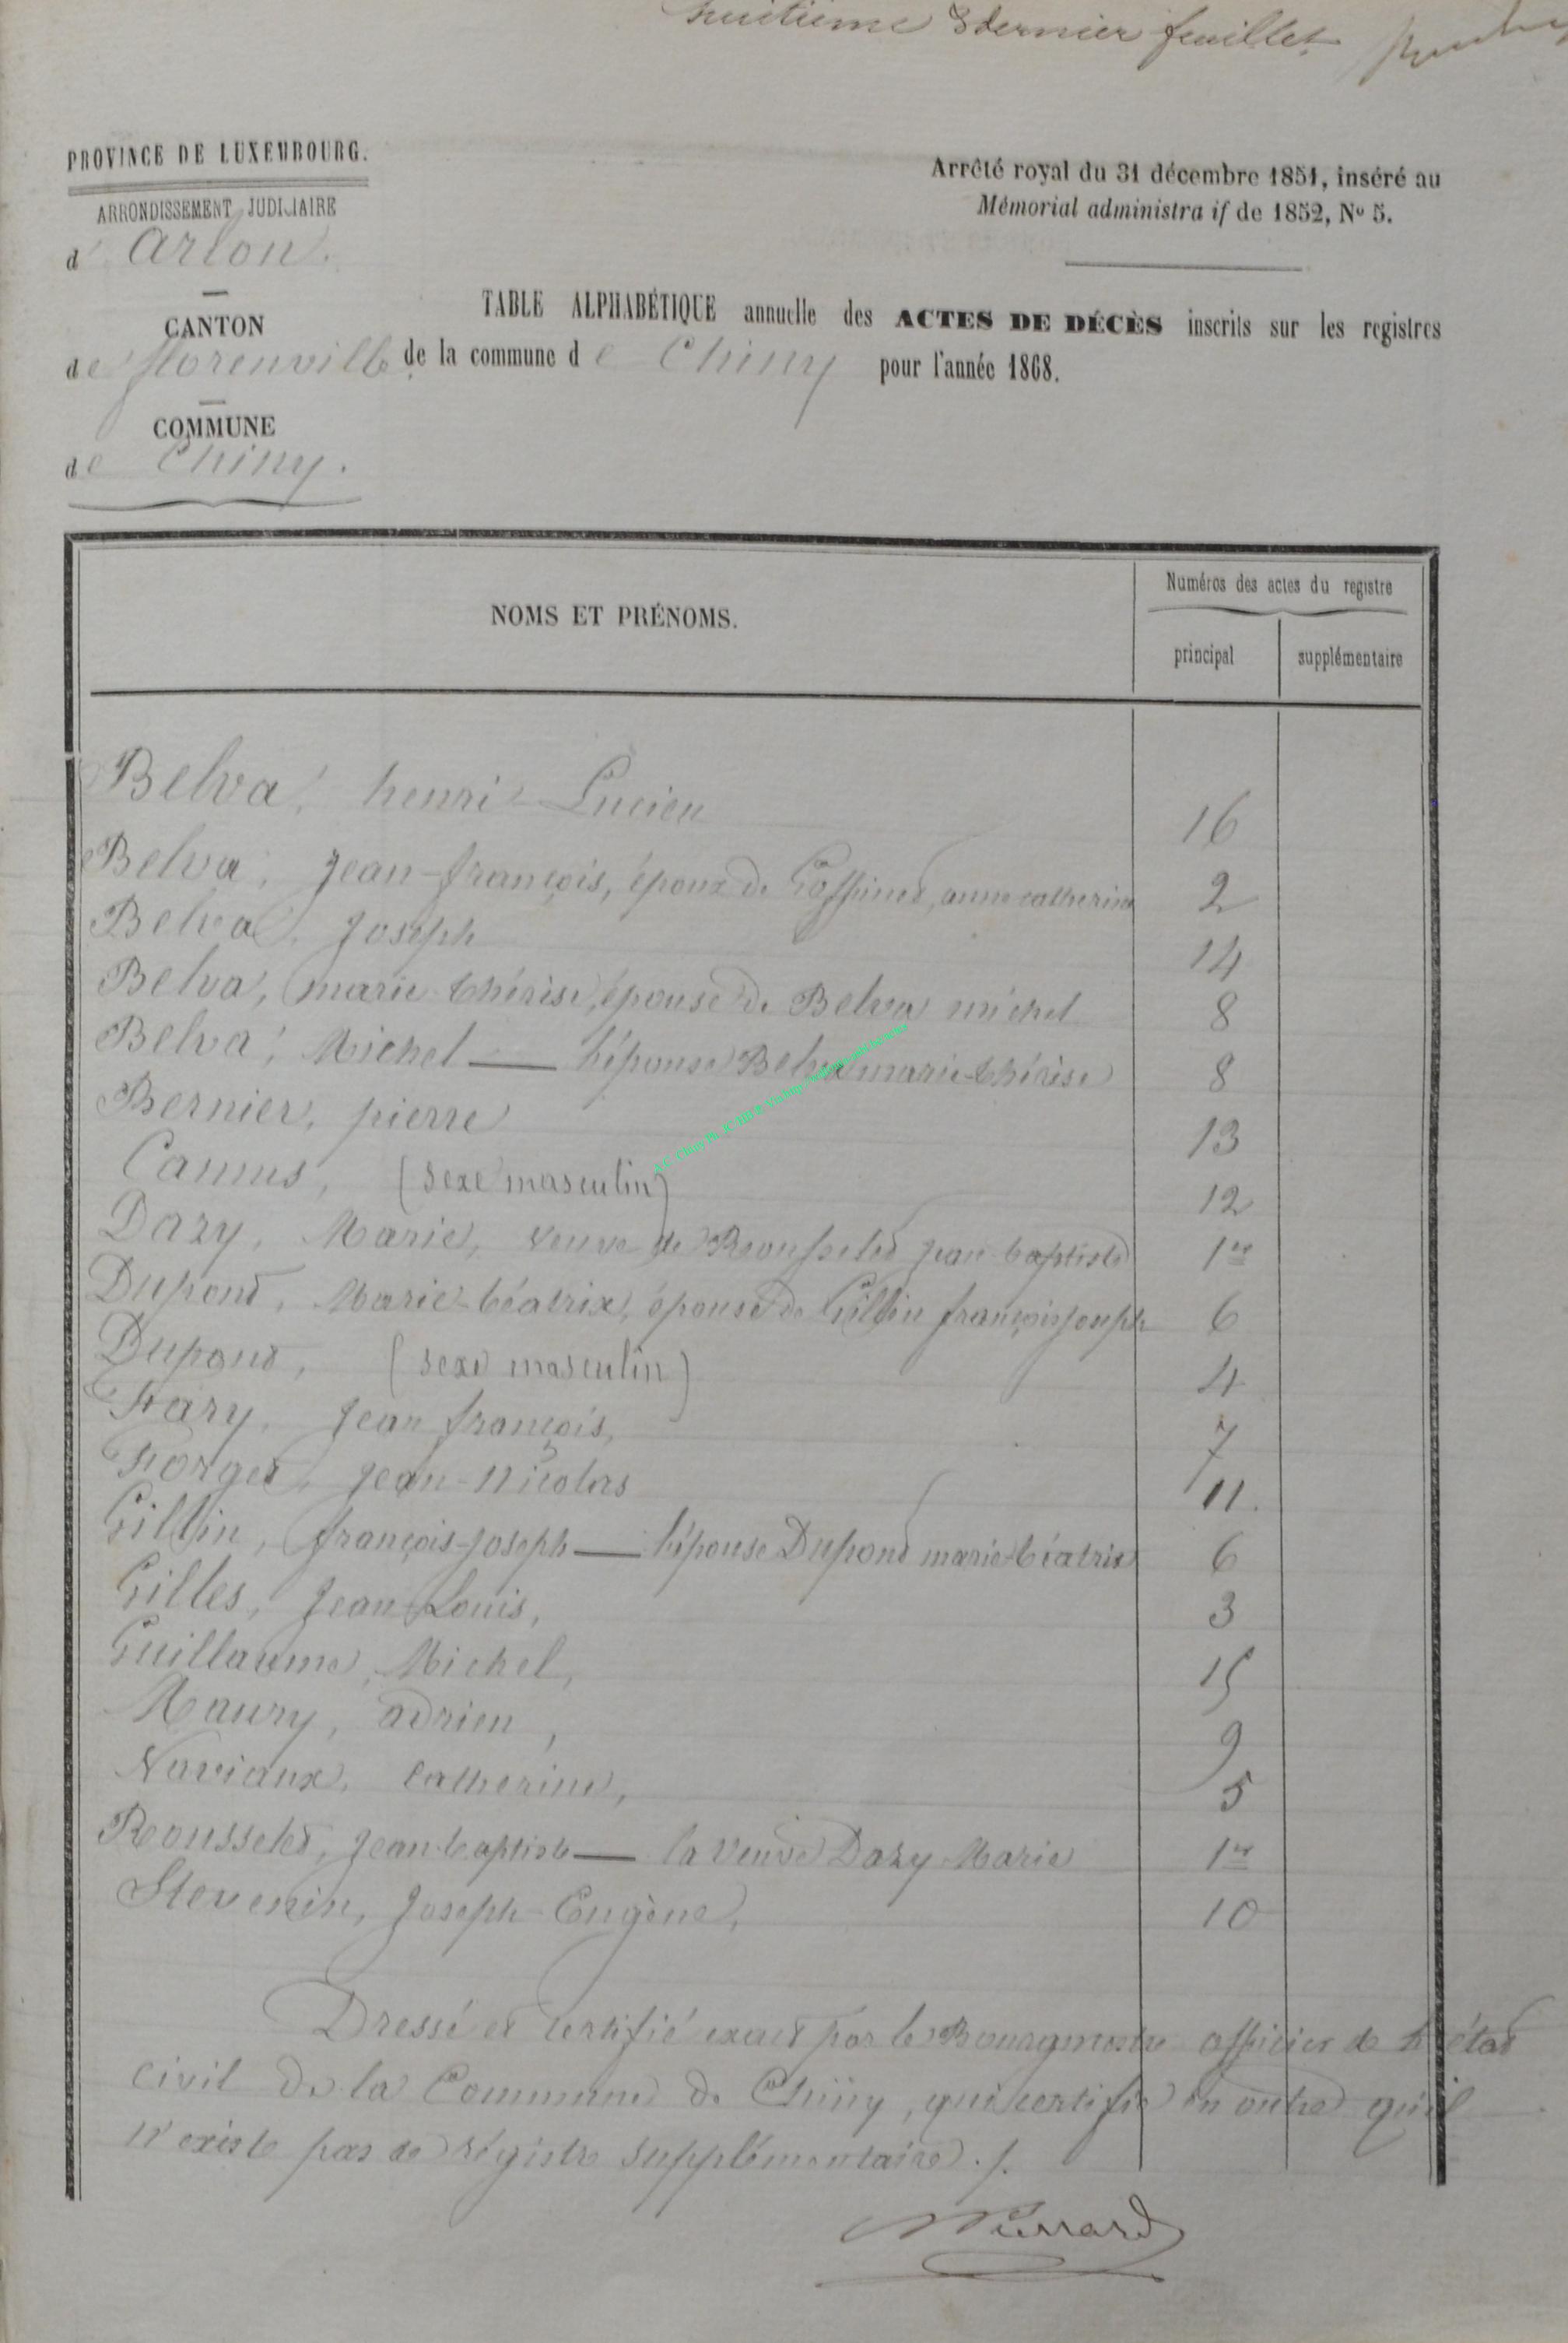 huitième & dernier feuillet
PROVINCE DE LUXEMBOURG.
ARRONDISSEMENT JUDICIAIRE
d' Arlon.
CANTON
de florenville
COMMUNE
de Chiny.
Arrêté royal du 31 décembre 1851, inséré au
Mémorial administra if de 1852, No 5.
TABLE ALPHABÉTIQUE annuelle des ACTES DE DÉCÈS inscrits sur les registres
de la commune de Chiny pour l'année 1868.
NOMS ET PRÉNOMS.
Numéros des actes du registre
principal
supplémentaire
Belva, henri Lucien 16
Belva, Jean-françois, époux de anne catherine 2
Belva, Joseph 14
Belva, marie-thérèse, épouse de Belva michel 8
Belva, Michel — l'épouse Belva marie-thérèse 8
Bernier, pierre 13
Camus, (sexe masculin) 12
Dazy, Marie, veuve de Rousselet jean-baptiste 1er
Dupont, Marie-béatrix, épouse de Gillin françois joseph 6
Dupont, (sexe masculin) 4
Hary, Jean françois, 7
Forget, jean-Nicolas 11.
Gillin, françois-joseph — l'épouse Dupont marie-béatrix 6
Gilles, Jean-Louis, 3
Guillaume, Michel, 15
Maury, adrien, 9
Naviaux, Catherine, 5
Rousselet, jean-baptiste — la veuve Dazy Marie 1er
Stevenin, Joseph-Eugène, 10
Dressé et certifié exact par le Bourgmestre officier de l'état
civil de la Commune de Chiny, qui certifie en outre qu'il
n'existe pas de régistre supplémentaire ./.